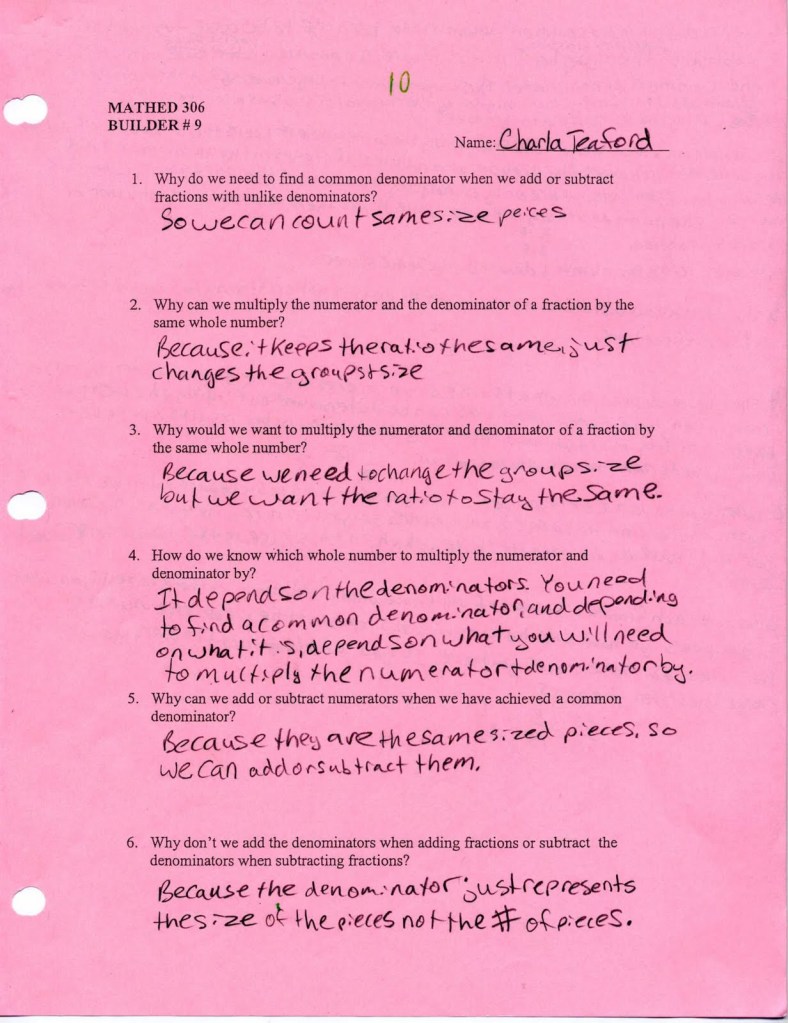 10
MATHED 306
BUILDER # 9
Name: Charla Teaford
1. Why do we need to find a common denominator when we add or subtract
fractions with unlike denominators?
So we can count same size peices
2. Why can we multiply the numerator and the denominator of a fraction by the
same whole number?
Because it keeps the ratio the same, just
changes the groups + size
3. Why would we want to multiply the numerator and denominator of a fraction by
the same whole number?
Because we need to change the group size
but we want the ratio to stay the same.
4. How do we know which whole number to multiply the numerator and
denominator by?
It depends on the denominators. You need
to find a common denominator, and depending
on what it is, depends on what you will need
to multiply the numerator + denominator by.
5. Why can we add or subtract numerators when we have achieved a common
denominator?
Because they are the same sized pieces, so
we can add or subtract them.
6. Why don't we add the denominators when adding fractions or subtract the
denominators when subtracting fractions?
Because the denominator just represents
the size of the pieces not the # of pieces.